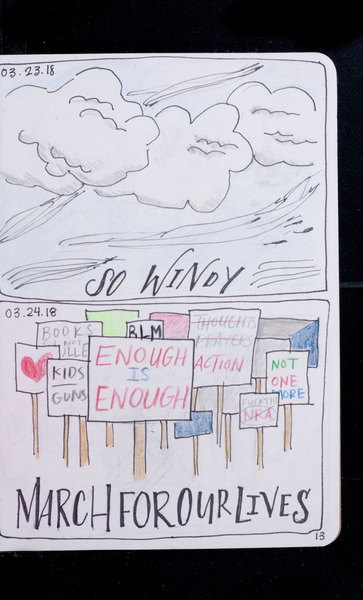 03.23.18
SO WINDY
03.24.18
BOOKS
NOT
BLM
THOUGHTS
PRAYERS
ACTION
KIDS
GUNS
ENOUGH
IS
ENOUGH
NOT
ONE
MORE
FUCKIN
NRA
MARCH FOR OUR LIVES
13